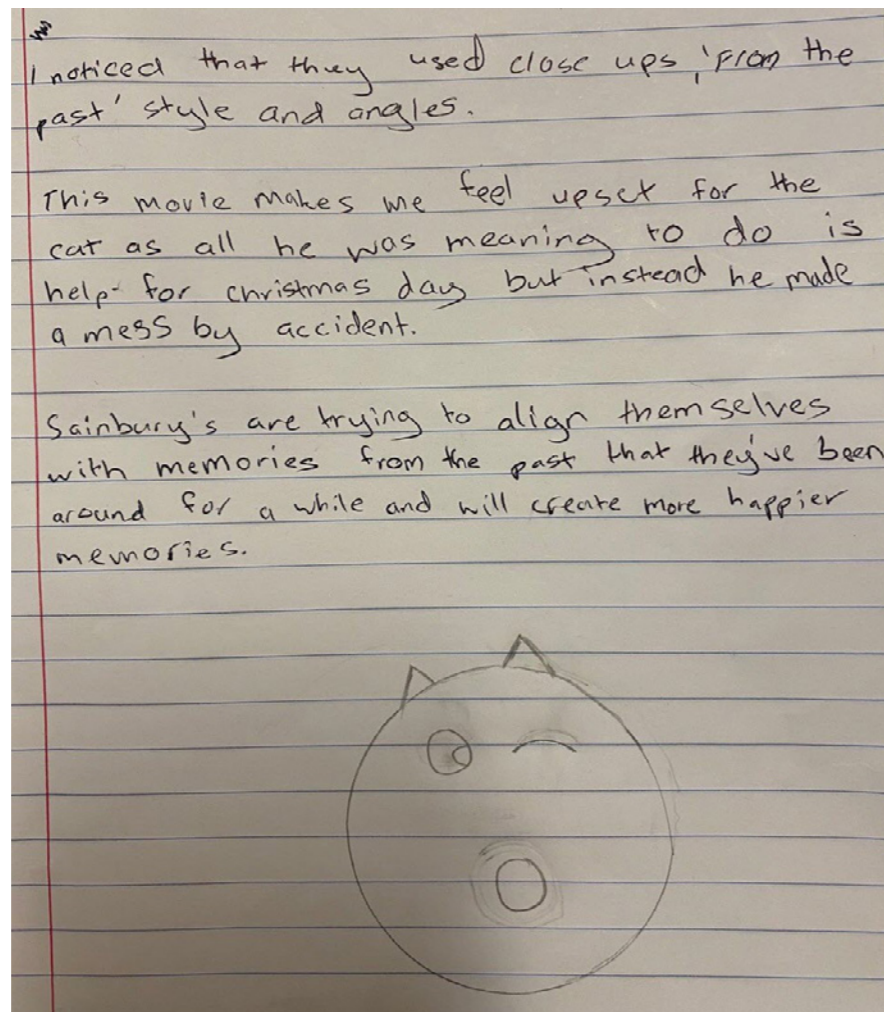 I noticed that they used close ups, 'from the
past' style and angles.
This movie makes me feel upset for the
cat as all he was meaning to do is
help for christmas day but instead he made
a mess by accident.
Sainbury's are trying to align themselves
with memories from the past that they've been
around for a while and will create more happier
memories.